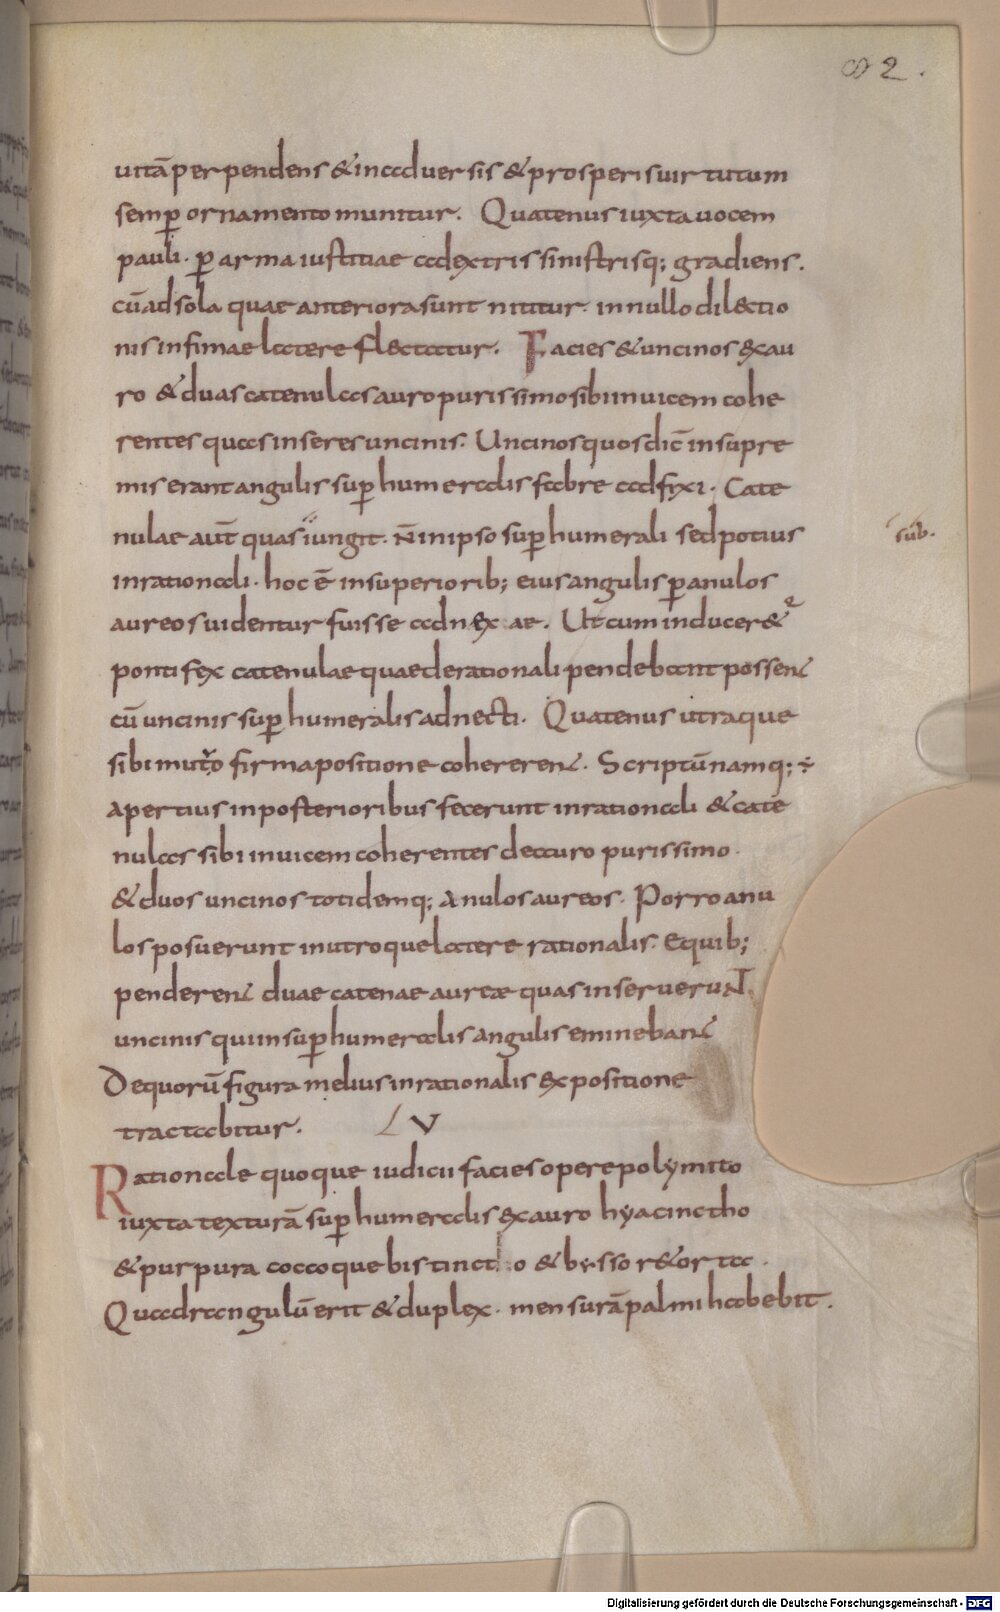 ∞ 2.
uitā perpendens & in aduersis & prosperis uirtutum
semp̄ ornamento munitur. Quatenus iuxta uocem
pauli. p̄ arma iustitiae a dextris sinistrisq; gradiens.
cū ad sola quae anteriora sunt nititur. in nullo dilectio
nis infimae latere flectatur. Facies & uncinos ex au
ro & duas catenulas auro purissimo sibi inuicem cohe
rentes quas inseres uncinis. Uncinos quos dic̄ in supre
mis erant angulis sup̄humeralis fabre adfixi. Cate
nulae aut̄ quas iungit. n̄ in ipso sup̄humerali sed potius
sub.
in rationali. hoc ē in superiorib; eius angulis p̄ anulos
aureos uidentur fuisse adnexae. Ut cum induceret
pontifex catenulae quae de rationali pendebant possent
cū uncinis sup̄humeralis adnecti. Quatenus utraque
sibi mutuo firma positione cohererent. Scriptū namq; ÷
apertius in posterioribus fecerunt in rationali & cate
nulas sibi inuicem coherentes de auro purissimo.
& duos uncinos totidemq; anulos aureos. Porro anu
los posuerunt in utroque latere rationalis. E quib;
penderent duae catenae aureae quas inseruerunt
uncinis qui in sup̄humeralis angulis eminebant
De quorū figura melius in rationalis expositione
tractabitur. LV
Rationale quoque iudicii facies opere polymito
iuxta texturā sup̄humeralis ex auro hyacinctho
& purpura coccoque bis tincto & bysso retorta.
Quadrangulū erit & duplex. mensurā palmi habebit.
Digitalisierung gefördert durch die Deutsche Forschungsgemeinschaft - DFG